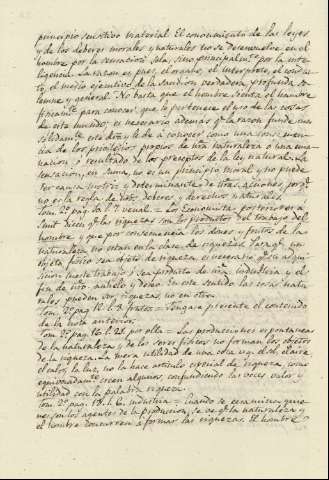 principio sensitivo material. El conocimiento de las leyes
y de los deberes morales y naturales no se desenvuelve en el
hombre por la sensacion sola, sino principalmte. por la inte-
ligencia. La razon es pues el oraculo, el interprete, el conduc-
to, el medio ejecutivo de la sancion verdadera, profunda, so-
lemne y general. No basta que el hombre sienta el hambre
fisicamte. para conocer que le pertenece el uso de las cosas
de este mundo; es necesario ademas qe. la razon funde mas
solidamte. este dro. y le dé á conocer como una consecuen-
cia de los privilegios propios de una naturaleza ó una ema-
nacion, ó resultado de los preceptos de la ley natural. La
sensacion, en suma, no es un principio moral y no puede
ser causa motriz y determinante de nras. acciones porqe.
no es la regla de nros. deberes y derechos naturales.
Tom. 2º. pag. Los Economistas posteriores á
Smit dicen qe. las riquezas son los productos del trabajo del
hombre y que por consecuencia los dones y frutos de la
naturaleza no están en la clase de riquezas. Para qe. un
objeto fisico sea objeto de riqueza, es necesario qe. su adqui-
sicion cueste trabajo ó sea producto de una industria y el
fin de nro. anhelo y deseo. En este sentido las cosas natu-
rales pueden ser riquezas, no en otro.
Tom. 2º. pag. 12. l. frutos = Tengase presente el contenido
de la nota anterior.
Tom. 2º. pag. 16. l. 21 por ella = Las producciones espontaneas
de la naturaleza y de los seres fisicos no forman los objetos
de la riqueza. La mera utilidad de una cosa v. g. el sol, el aire,
el calor, la luz, no la hace articulo esencial de riqueza, como
equivocadamte. creen algunos, confundiendo las voces valor y
utilidad con la palabra riqueza.
Tom. 2º. pag. 18. l. 6. industria = Cuando se examina qué
nes son los agentes de la produccion, se ve qe. la naturaleza y
el hombre concurren á formar las riquezas. El hombre